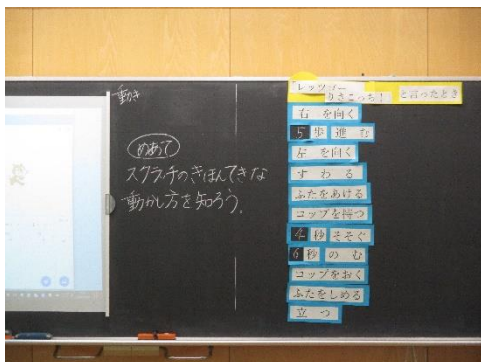 動き
めあて
スクラッチのきほんてきな
動かし方を知ろう。
レッツゴー
りさこっち！ と言ったとき
右 を向く
5 歩 進 む
左 を向く
す わ る
ふたをあける
コップを持つ
4 秒 そそぐ
6 秒 の む
コップをおく
ふたをしめる
立 つ